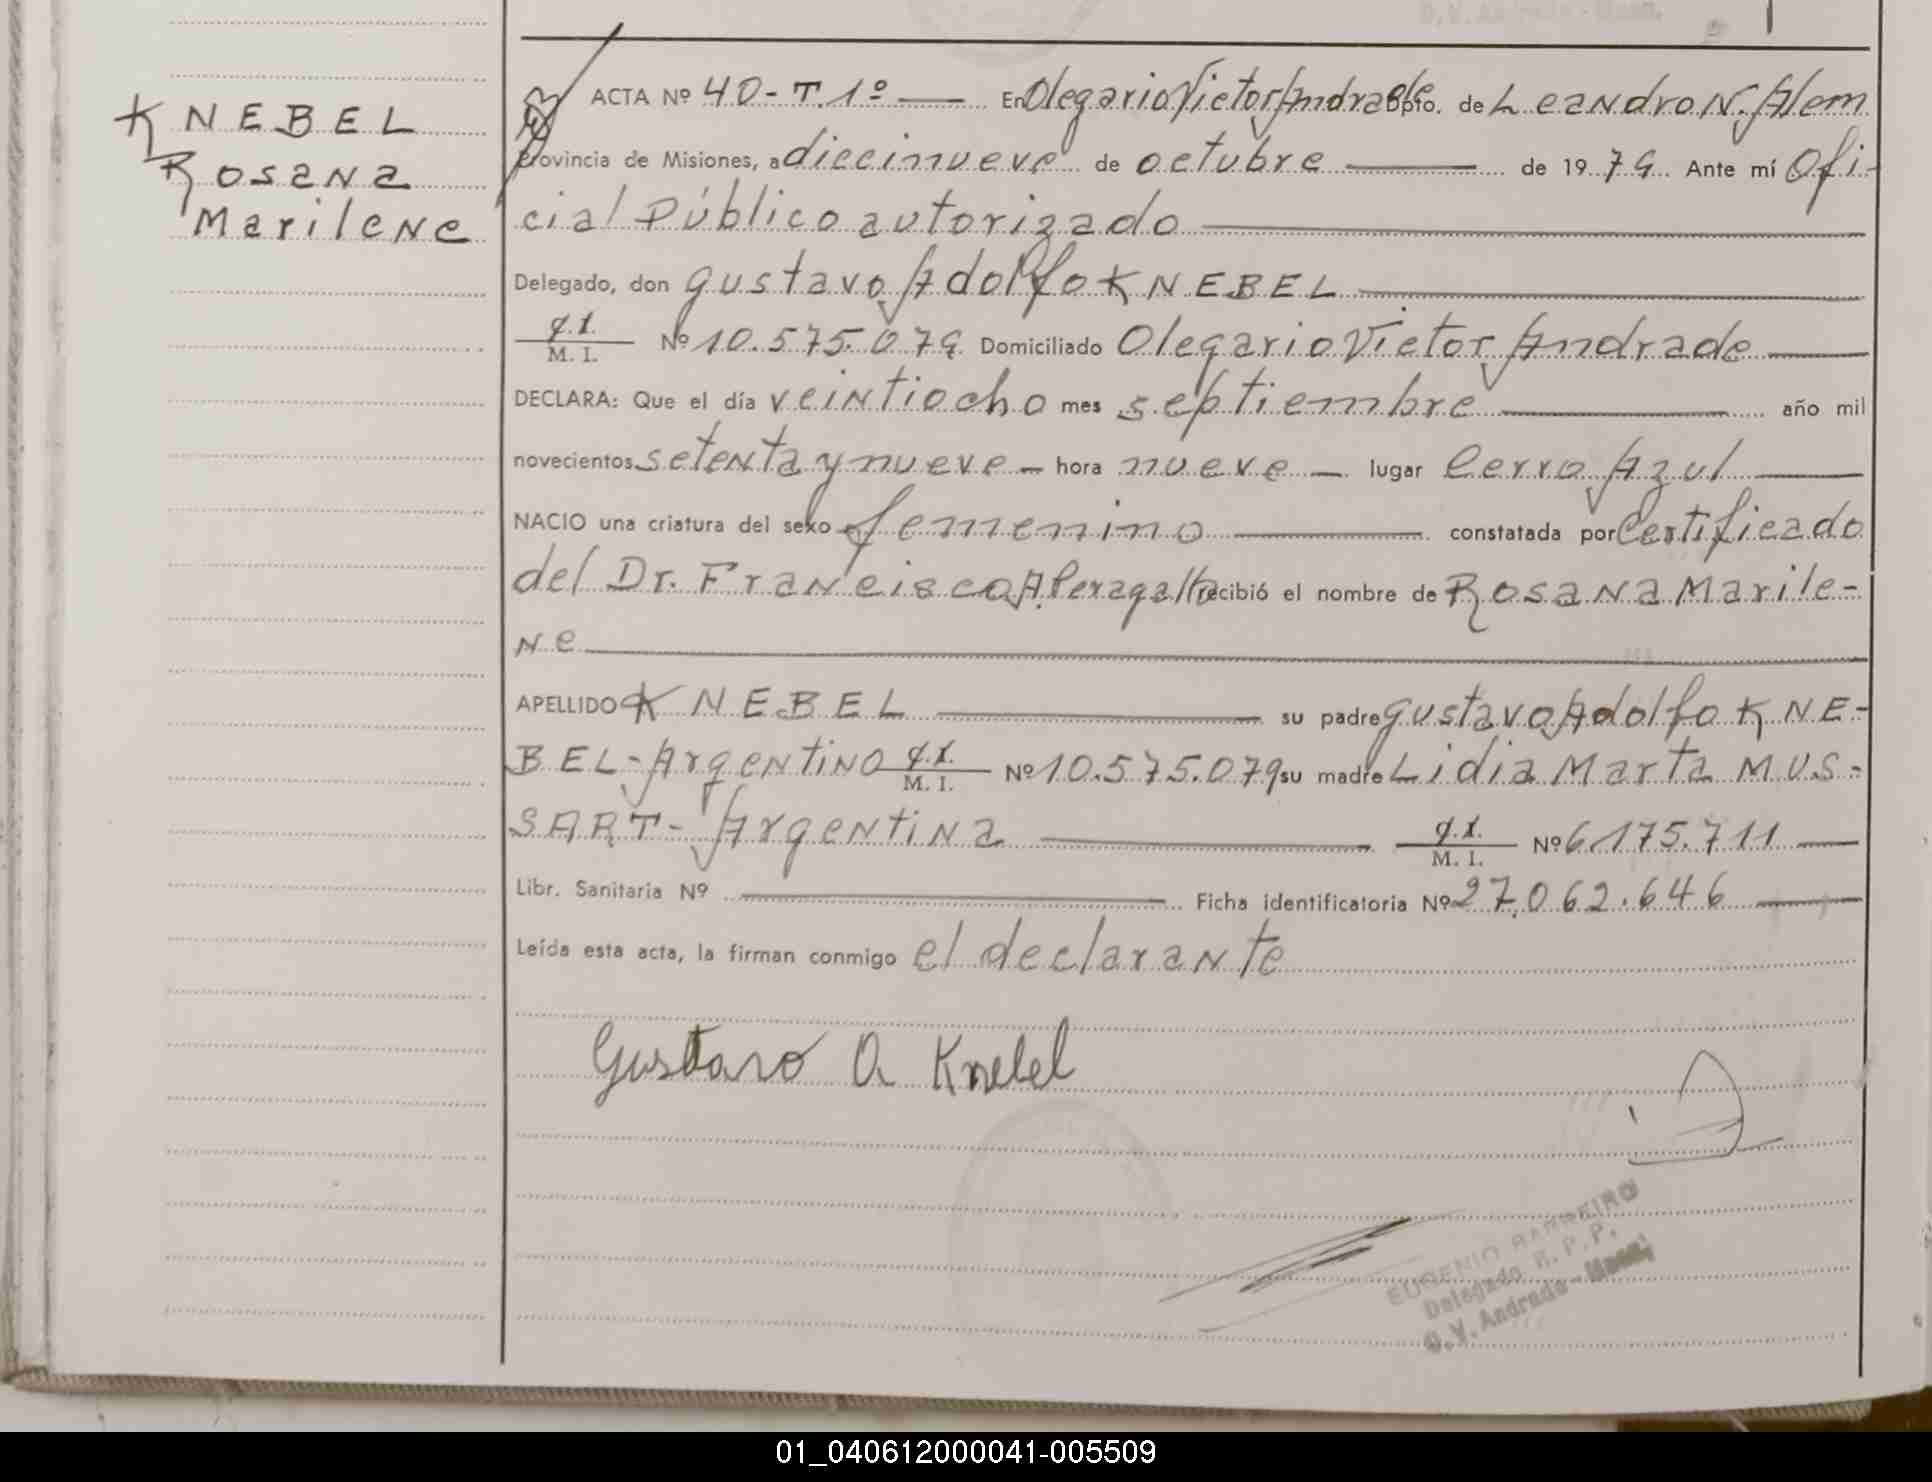 O.V. Andrade - Msnes.
KNEBEL
Rosana
Marilene
ACTA Nº 40-T.1º En Olegario Victor Andrade Dpto. de Leandro N. Alem
Provincia de Misiones, a diecinueve de octubre de 1979. Ante mí Ofi-
cial Público autorizado
Delegado, don Gustavo Adolfo KNEBEL
C.I.
M. I. Nº 10.575.079 Domiciliado Olegario Victor Andrade
DECLARA: Que el día veintiocho mes septiembre año mil
novecientos setenta y nueve hora nueve lugar Cerro Azul
NACIO una criatura del sexo femenino constatada por Certificado
del Dr. Francisco A. Peragallo recibió el nombre de Rosana Marile-
ne
APELLIDO KNEBEL su padre Gustavo Adolfo KNE-
BEL-Argentino C.I.
M. I. Nº 10.575.079 su madre Lidia Marta MUS-
SART- Argentina C.I.
M. I. Nº 6.175.711
Libr. Sanitaria Nº Ficha identificatoria Nº 27.062.646
Leída esta acta, la firman conmigo el declarante
Gustavo A Knebel
EUGENIO BARREIRO
Delegado R. P. P.
O.V. Andrade - Msnes.
01_040612000041-005509